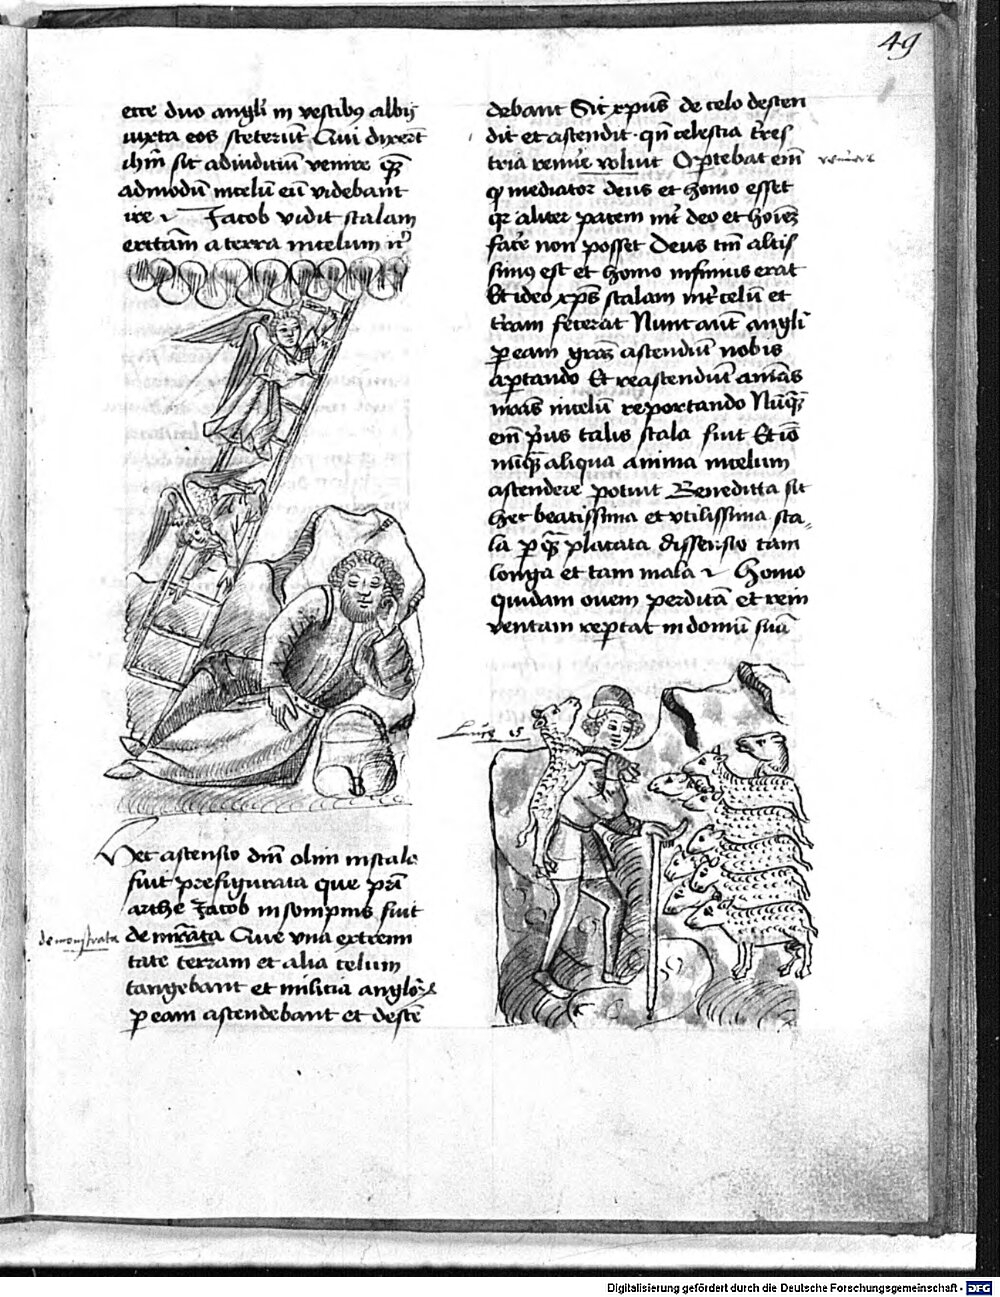 49
ecce duo angli in vestibꝫ albis
iuxta eos steterūt Qui dixert
ihm̄ sic ad iudiciū venire qꝫ
admodū in celū eū videbant
ire ⁊ Jacob vidit scalam
erectam a terra in celum ꝛc̄
Hec ascensio dn̄i olim in scala
fuit prefigurata que pri
arche Jacob in sompnis fuit
demonstrata demr̄ata Que vna extremi
tate terram et alia celum
tangebant et militia anglorꝫ
ꝑ eam ascendebant et descē
debant Sic xp̄us de celo descen
dit et ascendit qn̄ celestia tr̄es
tria renuē voluit Oꝑtebat em̄
ꝙ mediator deus et homo esset
qꝛ aliter pacem int̄ deo et hoīez
facē non posset Deus tm̄ altis
simꝰ est et homo infimus erat
Et ideo xp̄s scalam int̄ celū et
tr̄am fecerat Nunc aut̄ angli
ꝑ eam graz̄ ascendiū nobis
aꝑtando Et reascendiū anīas
nr̄as in celū reportando Nūqꝫ
em̄ pͥus talis scala fuit Et iō
nūqꝫ aliqua anima in celum
ascendere potuit Benedicta sit
hec beatissima et vtilissima sca
la ꝑ qꝫ placata dissensio tam
longa et tam mala ⁊ Homo
quidam ouem perditā et rein
ventam reꝑtat in domū suā
Luce 15
Digitalisierung gefördert durch die Deutsche Forschungsgemeinschaft - DFG